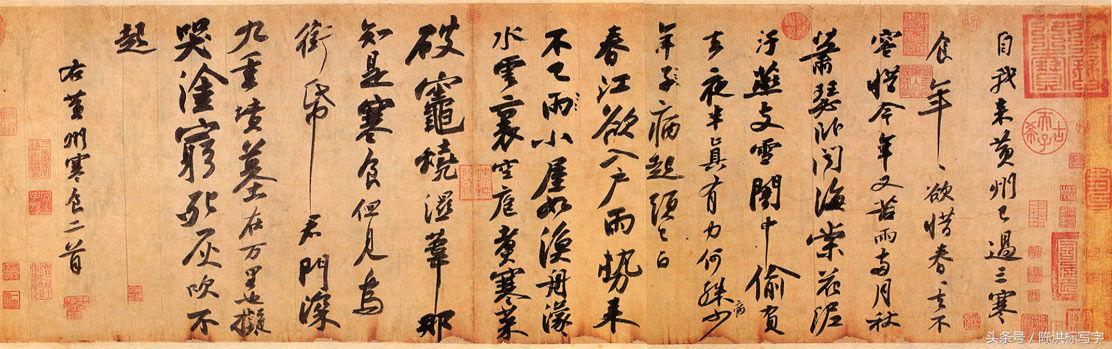 自我来黄州已過三寒
食年〻欲惜春〻去不
容惜今年又苦雨兩月秋
蕭瑟卧聞海棠花泥
汙燕支雪闇中偷負
去夜半真有力何殊少
病
年子病起頭已白
春江欲入户雨勢来
不已雨小屋如漁舟濛〻
水雲裏空庖煑寒菜
破竈燒濕葦那
知是寒食但見烏
銜帋君門深
九重墳墓在万里也擬
哭塗窮死灰吹不
起
右黄州寒食二首
古希天子
头条号 / 陈洪标写字